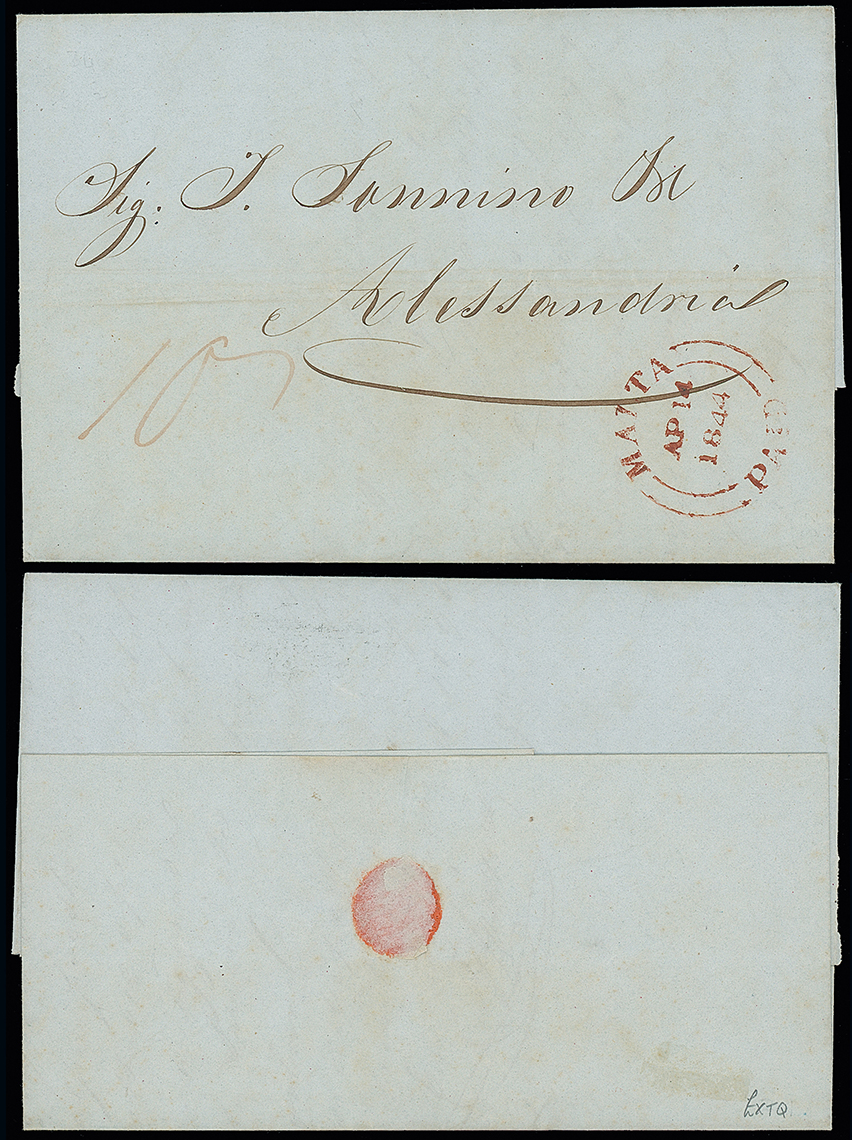 Sig: I. Sonnino
Alessandria
10
MALTA
AP 14
1844
PAID